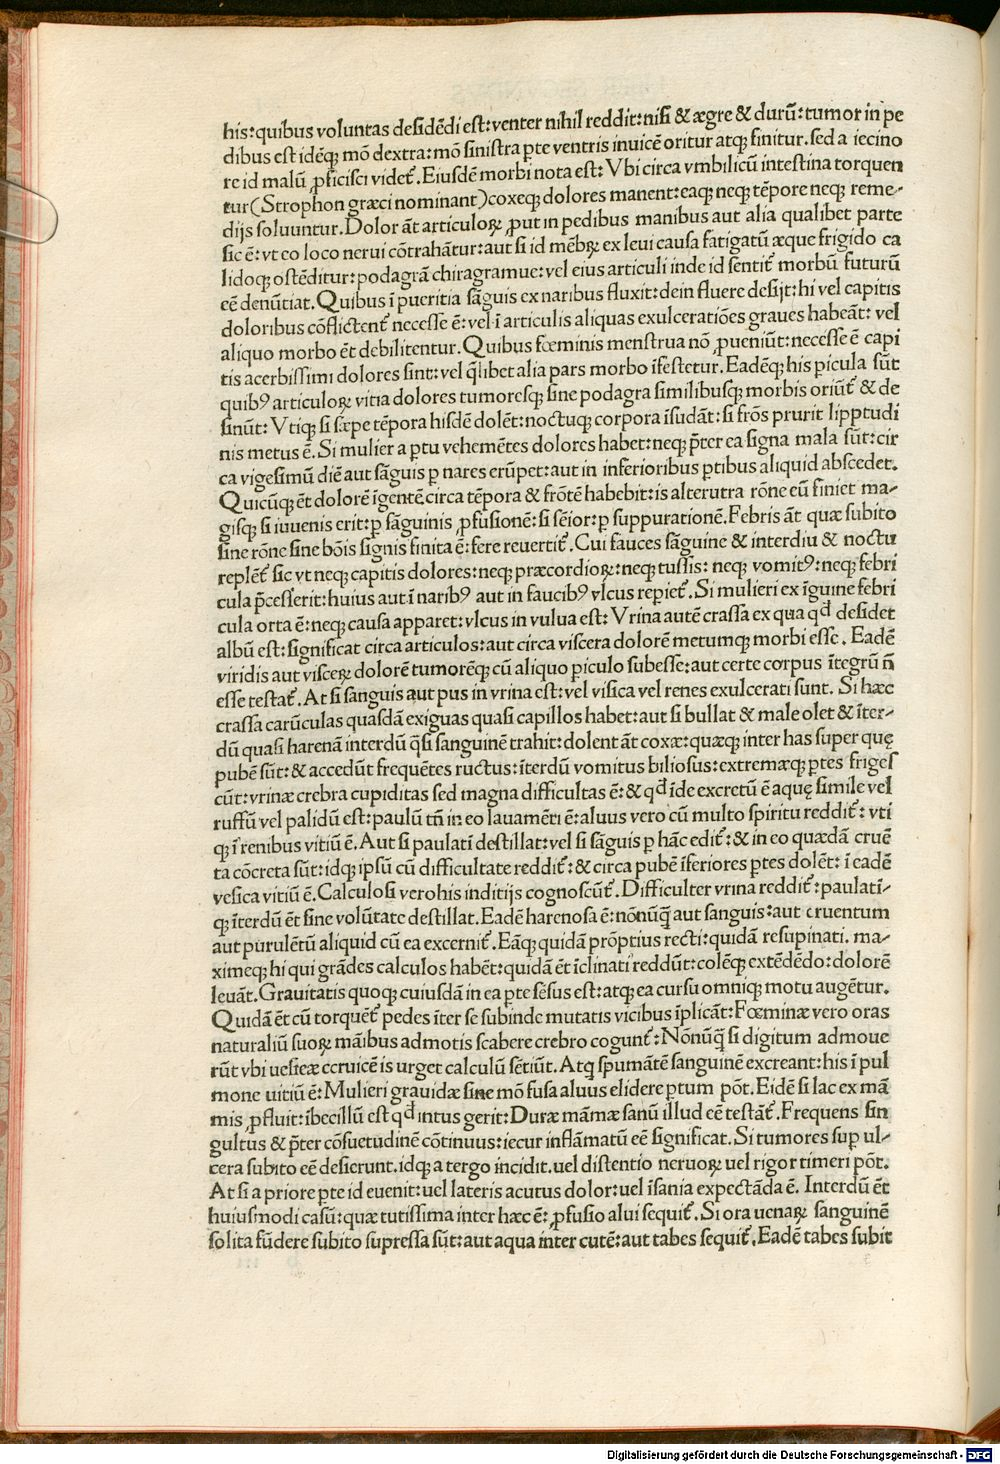 his:quibus voluntas desidēdi est:venter nihil reddit:nisi & ægre & durū:tumor in pe
dibus est idēqꝫ mō dextra:mō sinistra ꝑte ventris invicē oritur atqꝫ finitur.sed a iecino
re id malū ꝓficisci videt᷑.Eiusdē morbi nota est:Vbi circa vmbilicū intestina torquen
tur(Strophon græci nominant)coxeqꝫ dolores manent:eaqꝫ neqꝫ tēpore neqꝫ reme-
dijs soluuntur.Dolor āt articuloꝝ ꝓut in pedibus manibus aut alia qualibet parte
sic ē:vt eo loco nerui cōtrahātur:aut si id mēbꝝ ex leui causa fatigatū æque frigido ca
lidoqꝫ ostēditur:podagrā chiragramue:vel eius articuli inde id sentit᷑ morbū futurū
eē denūtiat.Quibus ī pueritia sāguis ex naribus fluxit:dein fluere desijt:hi vel capitis
doloribus cōflictent᷑ necesse ē:vel ī articulis aliquas exulceratiōes graues habeāt: vel
aliquo morbo ēt debilitentur.Quibus fœminis menstrua nō ꝓueniūt:necesse ē capi
tis acerbissimi dolores sint:vel q̄libet alia pars morbo īfestetur.Eadēqꝫ his ꝑicula sūt
quibꝰ articuloꝝ vitia dolores tumoresqꝫ sine podagra similibusqꝫ morbis oriūt᷑ & de
sinūt: Vtiqꝫ si sæpe tēpora hisdē dolēt:noctuqꝫ corpora īsudāt:si frōs prurit lipptudi
nis metus ē.Si mulier a ꝑtu vehemētes dolores habet:neqꝫ p̄ter ea signa mala sūt:cir
ca vigesimū diē aut sāguis ꝑ nares erūpet:aut in inferioribus ꝑtibus aliquid abscedet.
Quicūqꝫ ēt dolorē īgentē circa tēpora & frōtē habebit:is alterutra rōne eū finiet ma-
gisqꝫ si iuuenis erit:ꝑ sāguinis ꝓfusionē:si sēior:ꝑ suppurationē.Febris āt quæ subito
sine rōne sine bōis signis finita ē:fere reuertit᷑.Cui fauces sāguine & interdiu & noctu
replēt᷑ sic vt neqꝫ capitis dolores:neqꝫ præcordioꝝ:neqꝫ tussis: neqꝫ vomitꝰ:neqꝫ febri
cula p̄cesserit:huius aut ī naribꝰ aut in faucibꝰ vlcus repiet᷑.Si mulieri ex īguine febri
cula orta ē:neqꝫ causa apparet:vlcus in vulua est: Vrina autē crassa ex qua qđ desidet
albū est:significat circa articulos:aut circa viscera dolorē metumqꝫ morbi esse. Eadē
viridis aut visceꝝ dolorē tumorēqꝫ cū aliquo ꝑiculo subesse:aut certe corpus ītegrū n̄
esse testat᷑.At si sanguis aut pus in vrina est:vel visica vel renes exulcerati sunt. Si hæc
crassa carūculas quasdā exiguas quasi capillos habet:aut si bullat & male olet & īter-
dū quasi harenā interdū q̄si sanguinē trahit:dolent āt coxæ:quæqꝫ inter has super quę
pubē sūt:& accedūt frequētes ructus:īterdū vomitus biliosus:extremæqꝫ ꝑtes friges
cūt:vrinæ crebra cupiditas sed magna difficultas ē:& qđ īde excretū ē aquę simile vel
ruffū vel palidū est:paulū tn̄ in eo lauamēti ē:aluus vero cū multo spiritu reddit᷑: vti
qꝫ ī renibus vitiū ē.Aut si paulati destillat:vel si sāguis ꝑ hāc edit᷑:& in eo quædā cruē
ta cōcreta sūt:idqꝫ ipsū cū difficultate reddit᷑:& circa pubē īferiores ꝑtes dolēt: ī eadē
vesica vitiū ē.Calculosi vero his inditijs cognoscūt᷑.Difficulter vrina reddit᷑:paulatī-
qꝫ īterdū ēt sine volūtate destillat.Eadē harenosa ē:nōnūq̄ aut sanguis:aut cruentum
aut purulētū aliquid cū ea excernit᷑.Eāqꝫ quidā prōptius recti:quidā resupinati. ma-
ximeqꝫ hi qui grādes calculos habēt:quidā ēt īclinati reddūt:colēqꝫ extēdēdo:dolorē
leuāt.Grauitatis quoqꝫ cuiusdā in ea ꝑte sēsus est:atqꝫ ea cursu omniqꝫ motu augētur.
Quidā ēt cū torquēt᷑ pedes īter se subinde mutatis vicibus īplicāt:Fœminæ vero oras
naturaliū suoꝝ māibus admotis scabere crebro cogunt᷑:Nōnūq̄ si digitum admoue
rūt vbi uesicæ ceruicē is urget calculū sētiūt.Atqꝫ spumātē sanguinē excreant:his ī pul
mone uitiū ē:Mulieri grauidæ sine mō fusa aluus elidere ꝑtum pōt.Eidē si lac ex mā
mis ꝓfluit:ībecillū est qđ intus gerit:Duræ māmæ sanū illud eē testāt᷑.Frequens sin
gultus & p̄ter cōsuetudinē cōtinuus:iecur inflāmatū eē significat.Si tumores suꝑ ul-
cera subito eē desierunt.idqꝫ a tergo incidit.uel distentio neruoꝝ uel rigor timeri pōt.
At si a priore ꝑte id euenit:uel lateris acutus dolor:uel īsania expectāda ē. Interdū ēt
huiusmodi casū:quæ tutissima inter hæc ē: ꝓfusio alui sequit᷑.Si ora uenaꝝ sanguinē
solita fūdere subito supressa sūt:aut aqua inter cutē:aut tabes sequit᷑.Eadē tabes subit
Digitalisierung gefördert durch die Deutsche Forschungsgemeinschaft - DFG